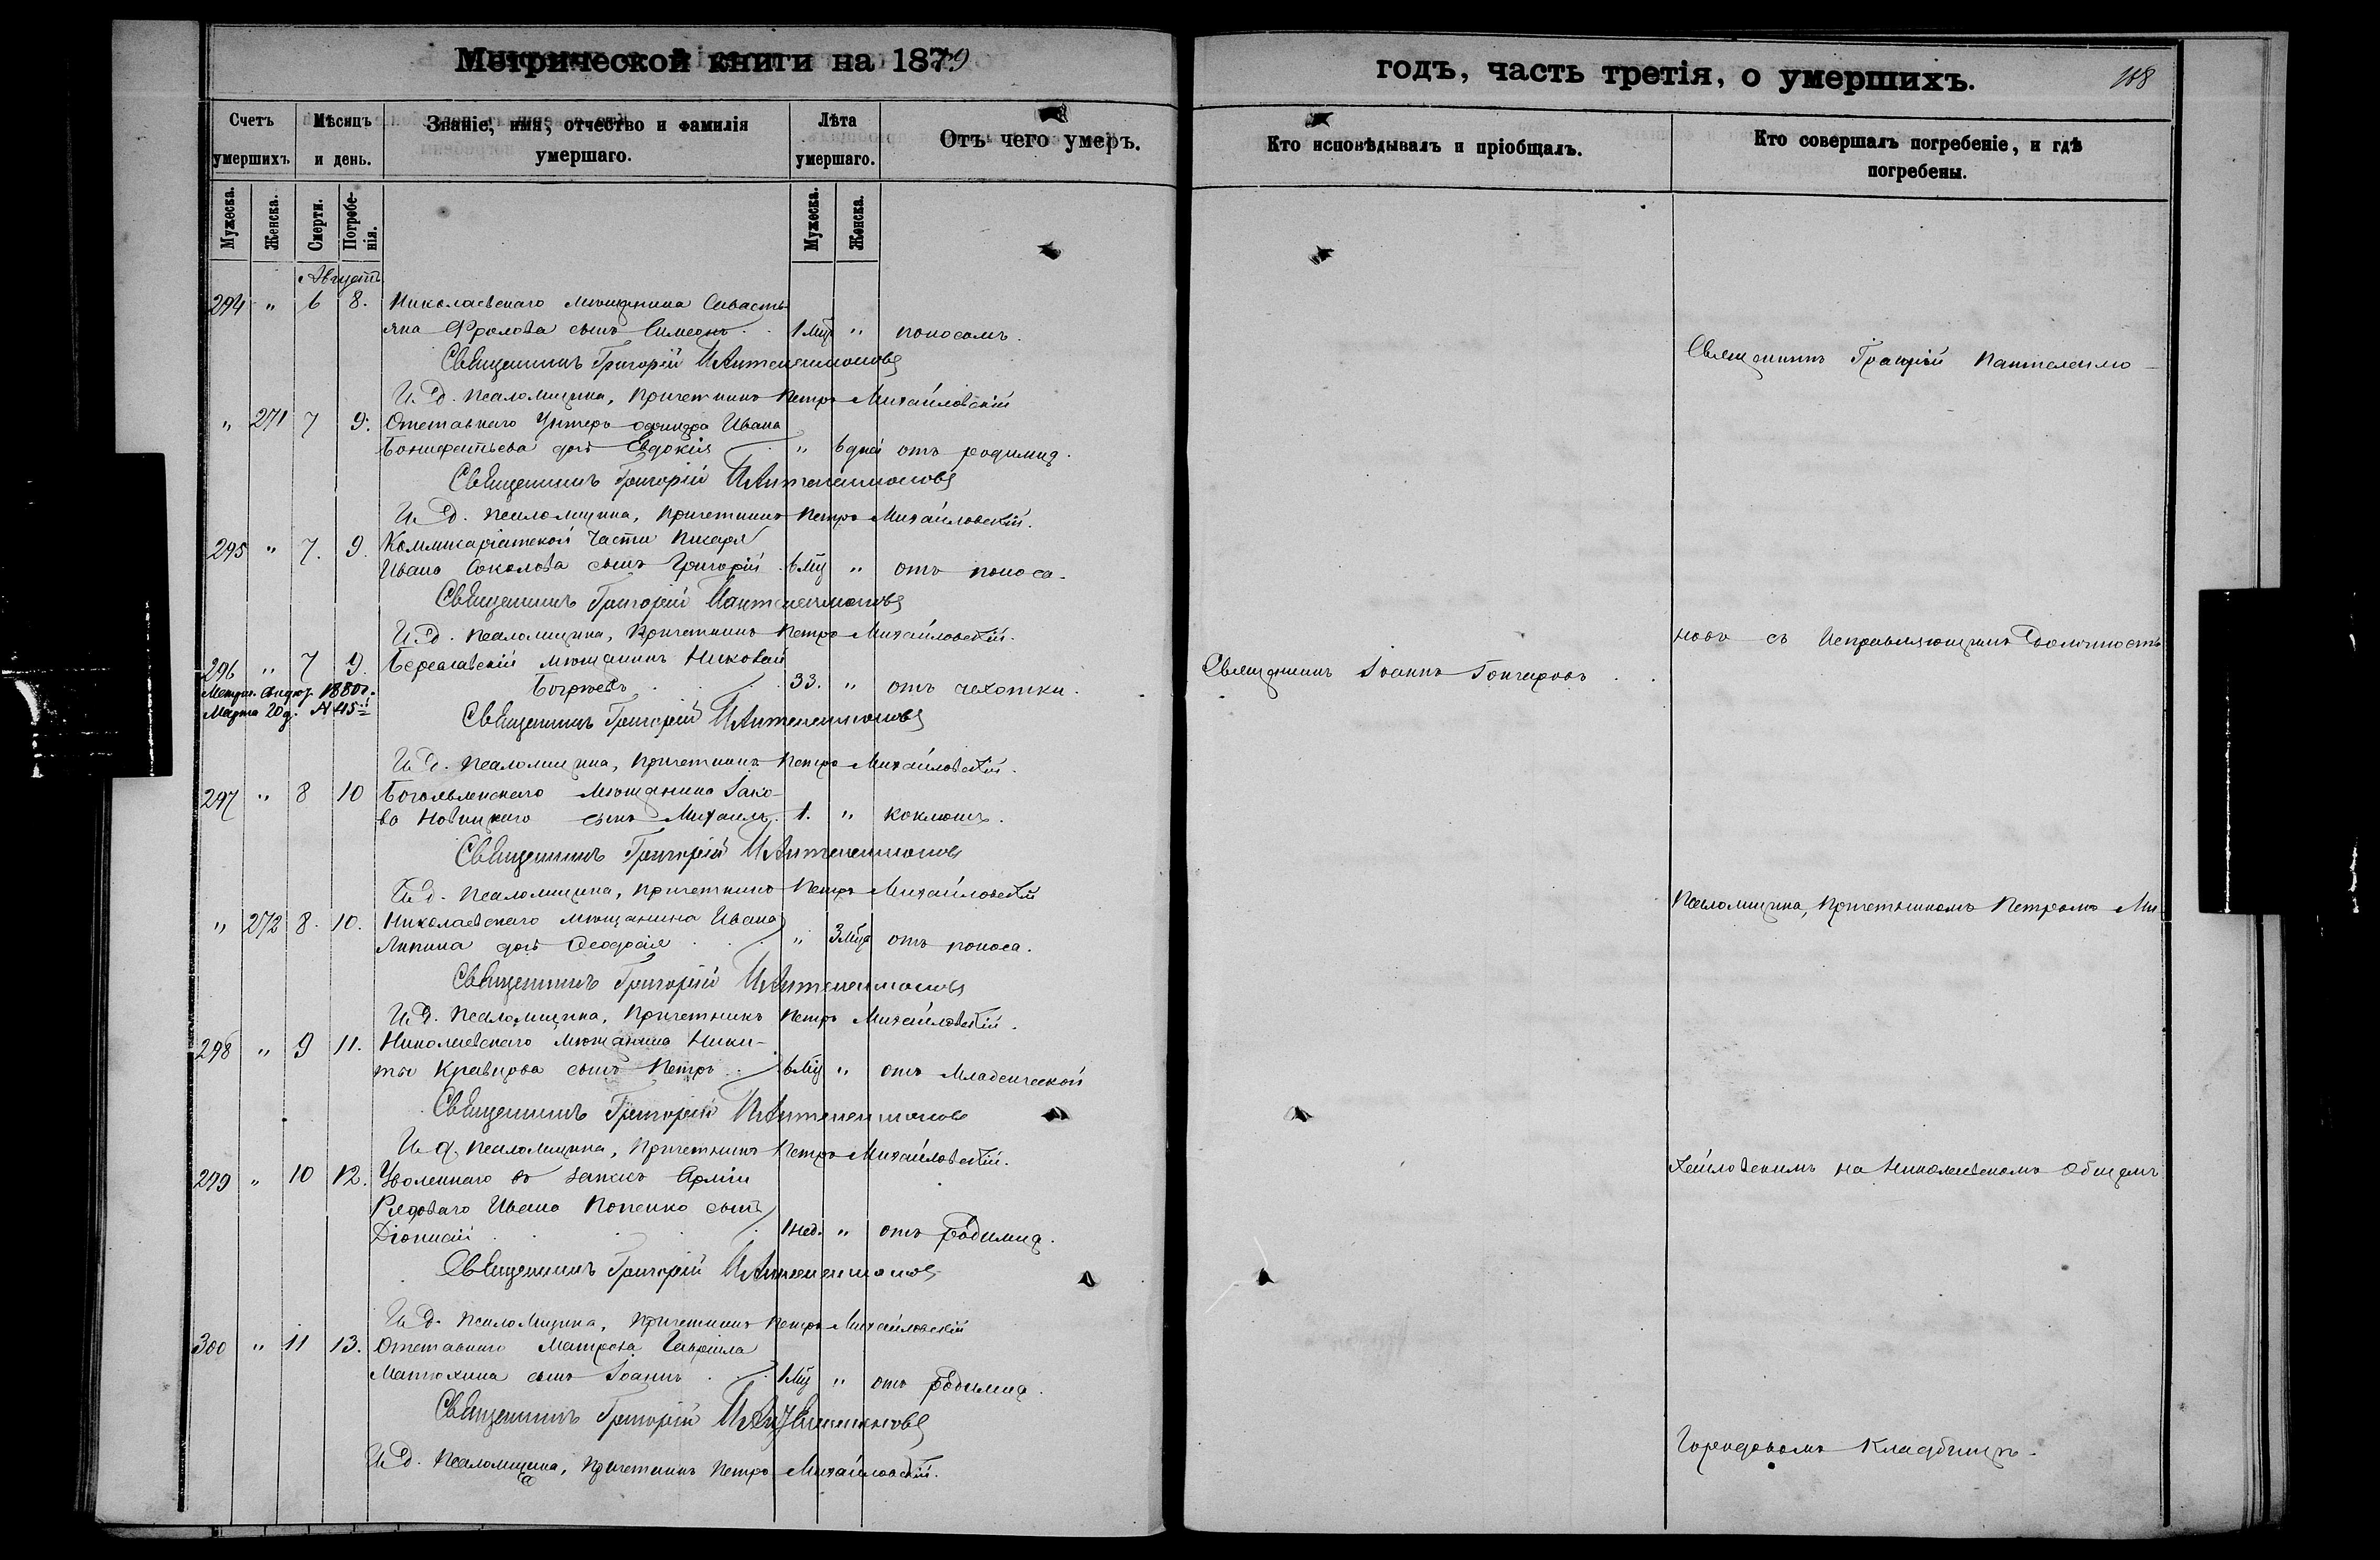 Метрической книги на 1879
годъ, часть третія, о умершихъ.
188
Счетъ умершихъ.
Мѣсяцъ и день.
Званіе, имя, отчество и фамилія умершаго.
Лѣта умершаго.
Отъ чего умеръ.
Кто исповѣдывалъ и пріобщалъ.
Кто совершалъ погребеніе, и гдѣ погребены.
Мужеска.
Женска.
Смерти.
Погребенія.
Мужеска.
Женска.
Августъ
294 " 6 8. Николаевскаго мѣщанина Севасть
яна Фролова сынъ Симеонъ . . 1 мѣц " поносомъ.
Священникъ Григорій Пантелеимоновъ
И. д. псаломщика, причетникъ Петръ Михайловскій
" 271 7 9. Отставнаго унтеръ офицера Ивана
Бонифатьева дочь Евдокія " 6 дней отъ родимца.
Священникъ Григорій Пантелеимоновъ
И. д. псаломщика, причетникъ Петръ Михайловскій.
295 " 7. 9. Коммисаріатской части писаря
Ивана Соколова сынъ Григорій . 6 мѣц " отъ поноса.
Священникъ Григорій Пантелеимоновъ
И. д. псаломщика, причетникъ Петръ Михайловскій.
296 " 7 9. Береславскій мѣщанинъ Николай
33. " отъ чахотки.
Марта 20 д. N 45
Священникъ Григорій Пантелеимоновъ
И. д. псаломщика, причетникъ Петръ Михайловскій.
297 " 8 10 Богоявленскаго мѣщанина Іако-
ва Новицкаго сынъ Михаилъ. 1. " коклюшъ.
Священникъ Григорій Пантелеимоновъ
И. д. псаломщика, причетникъ Петръ Михайловскій
" 272 8. 10. Николаевскаго мѣщанина Ивана
Липина дочь Феодосія . . . " 3 мѣца отъ поноса.
Священникъ Григорій Пантелеимоновъ
И. д. псаломщика, причетникъ Петръ Михайловскій.
298 " 9 11. Николаевскаго мѣщанина Ники-
ты Кравцова сынъ Петръ . . 6 мѣц " отъ младенческой
Священникъ Григорій Пантелеимоновъ
И. д. псаломщика, причетникъ Петръ Михайловскій.
299 " 10 12. Уволеннаго въ запасъ арміи
Рядоваго Ивана Попенко сынъ
Діонисій . . . . 1 нед. " отъ родимца.
Священникъ Григорій Пантелеимоновъ
И. д. псаломщика, причетникъ Петръ Михайловскій
300 " 11 13. Отставнаго матроса Гавріила
Матюхина сынъ Іоаннъ . . . 1 мѣц " отъ родимца.
Священникъ Григорій Пантелеимоновъ
И. д. псаломщика, причетникъ Петръ Михайловскій.
Священникъ Іоаннъ Гончаровъ . .
Священникъ Григорій Пантелеимо-
новъ съ исправляющимъ должность
псаломщика, причетникомъ Петромъ Ми-
хайловскимъ на Николаевскомъ общемъ
городскомъ кладбищѣ.